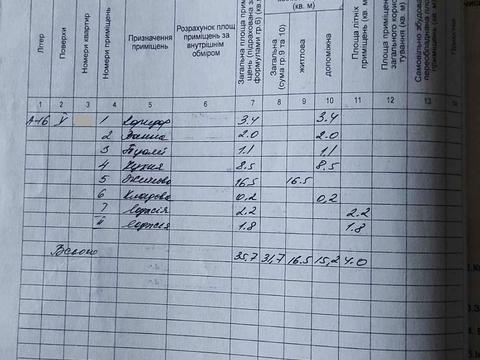 Літер
Поверхи
Номери квартир
Номери приміщень
Призначення приміщень
Розрахунок площ приміщень за внутрішнім обміром
Загальна площа
формулами гр.6) (кв.
(кв. м)
Загальна (сума гр 9 та 10)
житлова
допоміжна
Площа літніх приміщень (кв. м)
Площа приміщень загального
(кв. м)
Самовільно
1 2 3 4 5 6 7 8 9 10 11 12 13 14
А-16 V 1 Коридор 3.4 3.4
2 Ванна 2.0 2.0
3 Туалет 1.1 1.1
4 Кухня 8.5 8.5
5 Житлова 16.5 16.5
6 Кладова 0,2 0,2
I Лоджія 2.2 2.2
II Лоджія 1.8 1.8
Всього 35.7 31,7 16.5 15,2 4.0